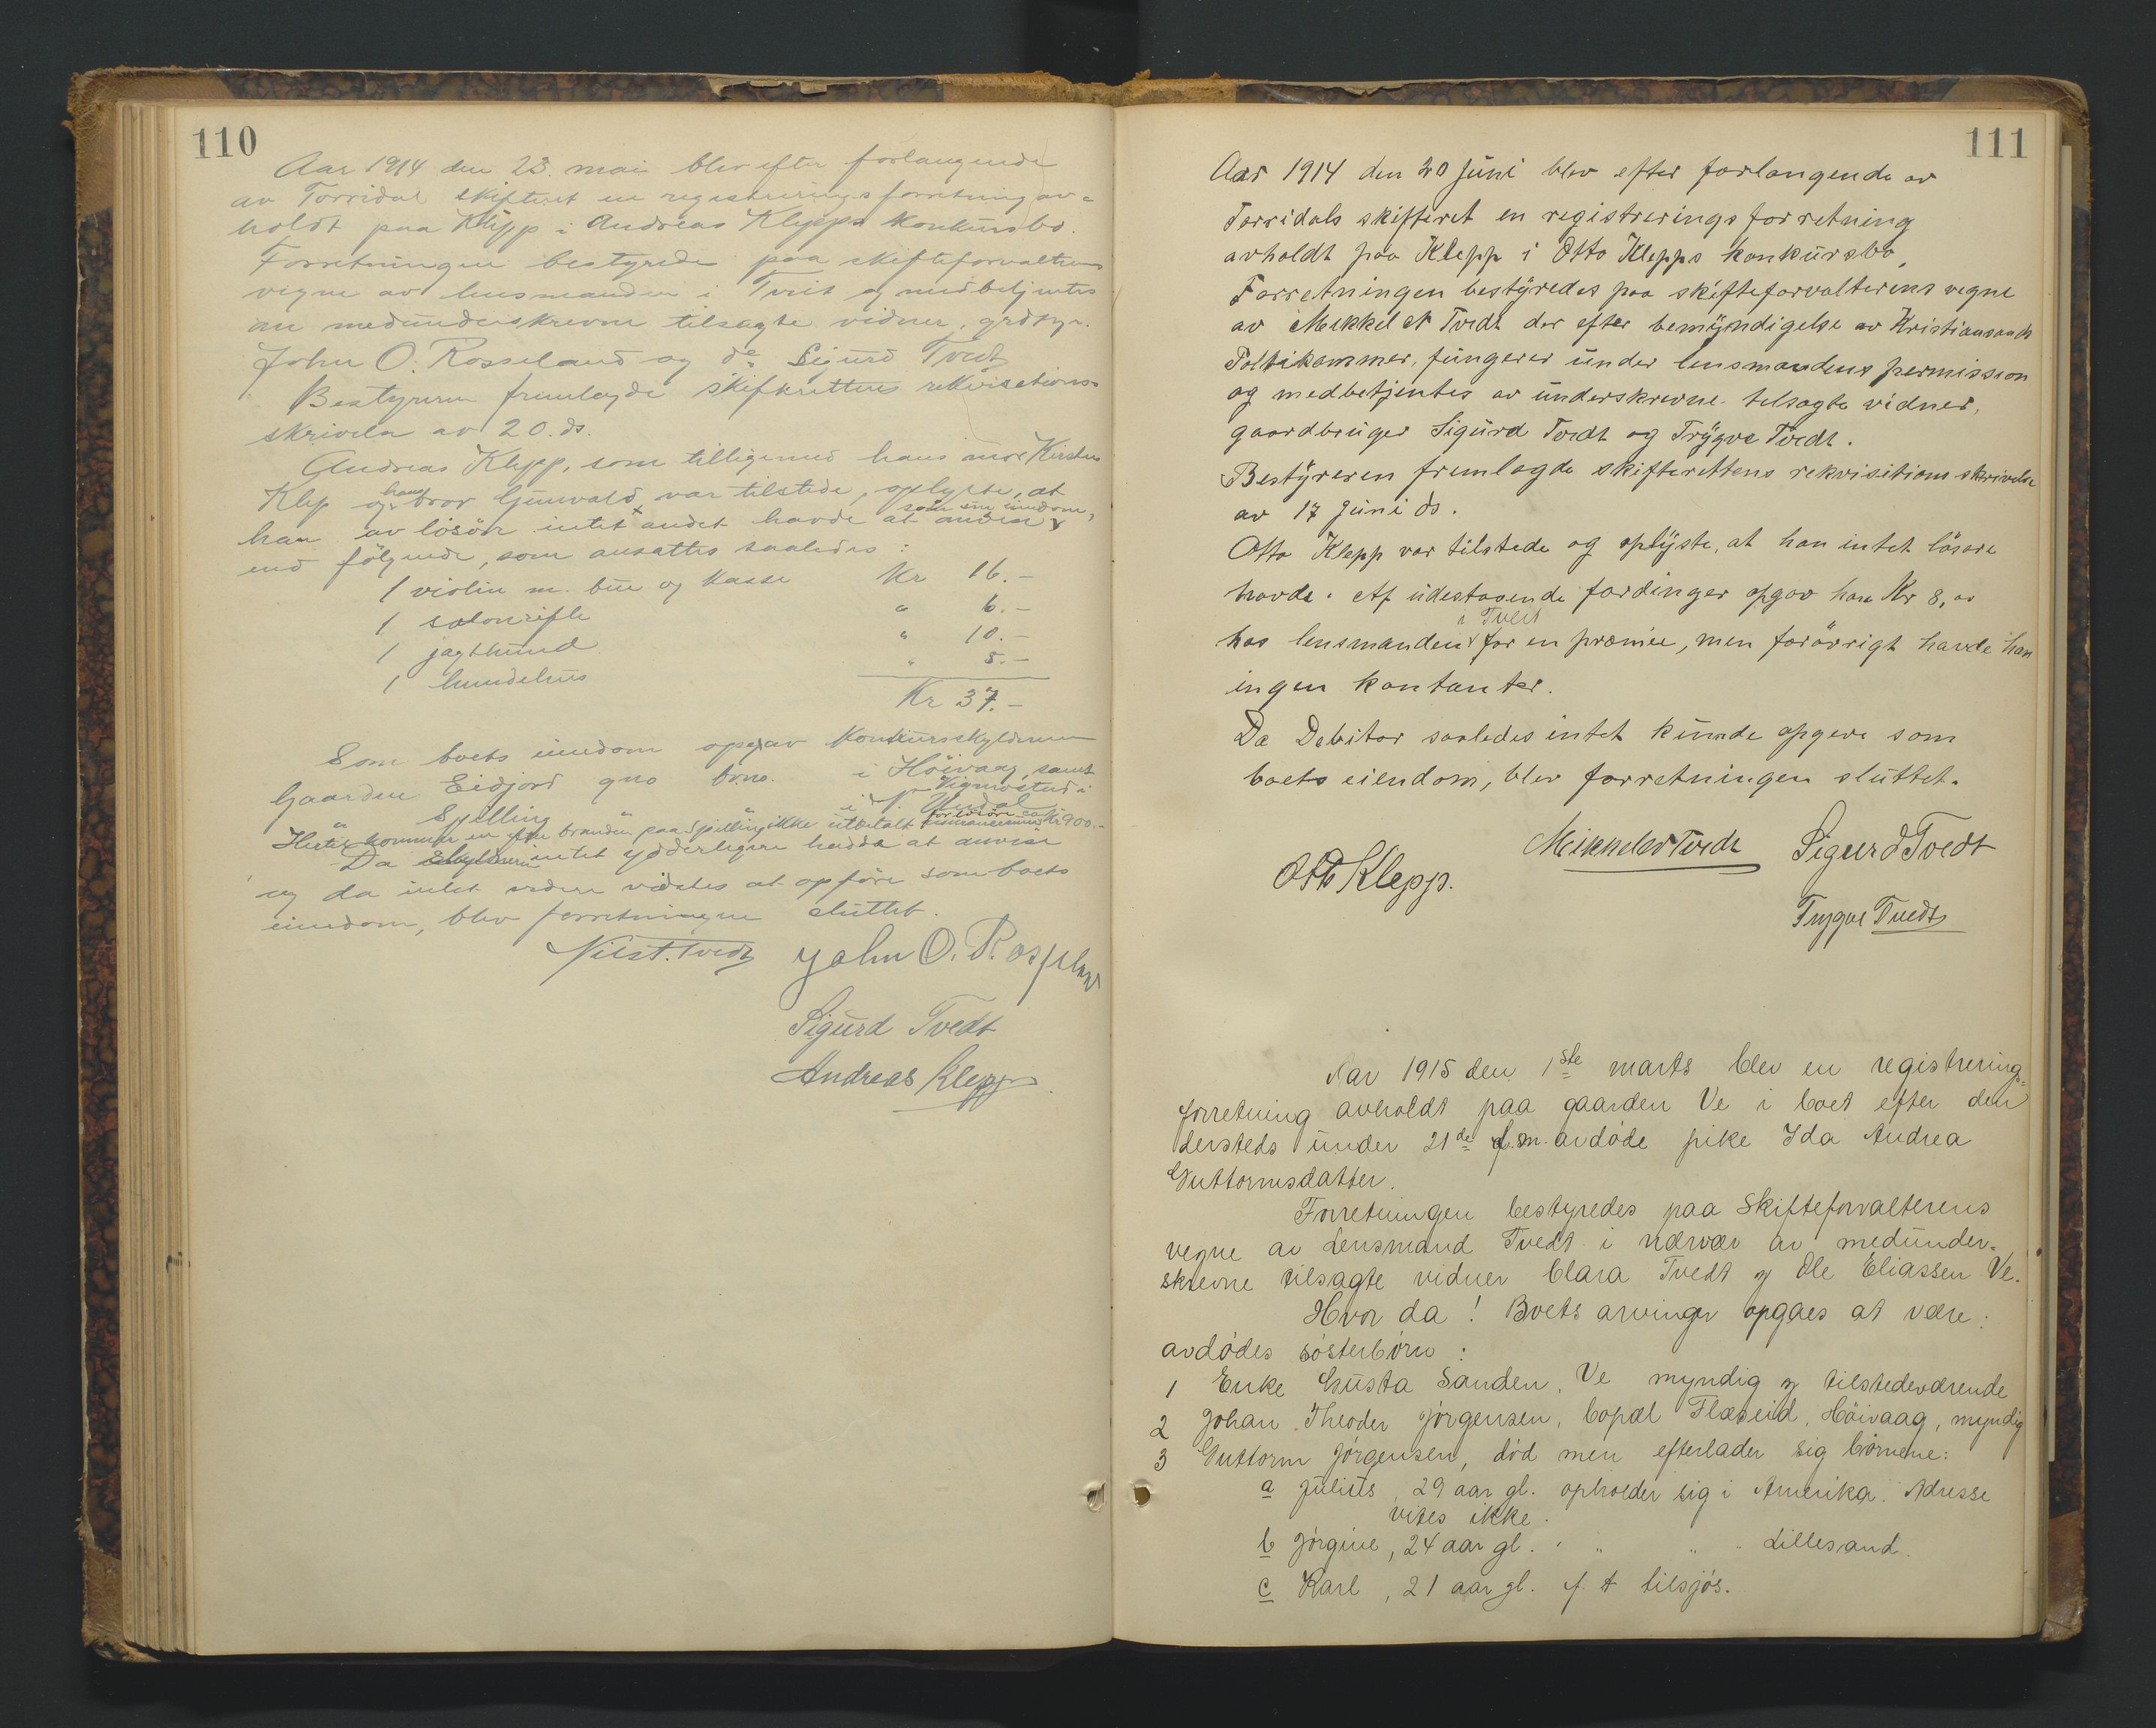 110
Aar 1914 den 23. mai blev efter forlangende
av Torridal skifteret en registreringsforretning av=
holdt paa Klepp i Andreas Klepps konkursbo.
Forretningen bestyredes paa skifteforvalterens
vegne av lensmanden i Tveit og medbetjentes
av medunderskrevne tilsagte vidner, grdbr.
John O. Rosseland og do Sigurd Tvedt
Bestyreren fremlagde skifterettens rekvisitions-
skrivelse av 20. ds.
Andreas Klepp, som tilligemed hans mor Kirstine
Klep og hans bror Gunvald var tilstede, oplyste, at
han av lösöre intet andet havde at anvise som sin eiendom,
end fölgende, som ansattes saaledes:
1 violin m. bue og kasse Kr 16.-
1 salonrifle " 6.-
1 jagthund " 10.-
1 hundehus " 5.-
Kr 37.-
Som boets eiendom opgav konkursskyldneren
Gaarden Eidjord gno brno. i Höivaag, samt
" Spelling i Vigmostad i
Undal
Hertil kommer en fra branden paa Spelling ikke utbetalt for lösöre ca Kr 900.-
Da intet ydderligere hadde at anvise
og da intet videre vidstes at opföre som boets
eiendom, blev forretningen sluttet.
Nils T. Tvedt John O. Rosseland
Sigurd Tvedt
Andreas Klepp
111
Aar 1914 den 20 Juni blev efter forlangende av
Torridals skifteret en registreringsforretning
avholdt paa Klepp i Otto Klepps konkursbo,
Forretningen bestyredes paa skifteforvalterens vegne
av Mikkel N Tvedt der efter bemyndigelse av Kristiansands
Politikammer, fungerer under lensmandens permission
og medbetjentes av underskrevne tilsagte vidner,
gaardbruger Sigurd Tvedt og Trygve Tvedt.
Bestyreren fremlagde skifterettens rekvisitions skrivelse
av 17 Juni ds.
Otto Klepp var tilstede og oplyste, at han intet lösöre
havde. Af udestaaende fordinger opgav han Kr 8,00
hos lensmanden i Tveit for en præmie, men forövrigt havde han
ingen kontanter.
Da Debitor saaledes intet kunde opgeve som
boets eiendom, blev forretningen sluttet.
Mikkel N Tvedt Sigurd Tvedt
Otto Klepp.
Trygve Tvedt
Aar 1915 den 1ste marts blev en registrerings=
forretning avholdt paa gaarden Ve i boet efter den
dersteds under 21de f.m. avdöde pike Ida Andrea
Guttormsdatter.
Forretningen bestyredes paa Skifteforvalterens
vegne av Lensmand Tvedt i nærvær av medunder=
skrevne tilsagte vidner Clara Tvedt og Ole Eliassen Ve.
Hvor da! Boets arvinger opgaes at være:
avdödes sösterbörn:
1 Enke Gusta Sanden, Ve myndig og tilstedeværende
2 Johan Theoder Jörgensen, bopæl Flaseid, Höivaag, myndig
3 Guttorm Jörgensen, död men efterlader sig börnene:
a Julius, 29 aar gl. opholder sig i Amerika. Adresse
vites ikke.
b Jörgine, 24 aar gl. " " " " Lillesand.
c Karl, 21 aar gl. f. t tilsjös.